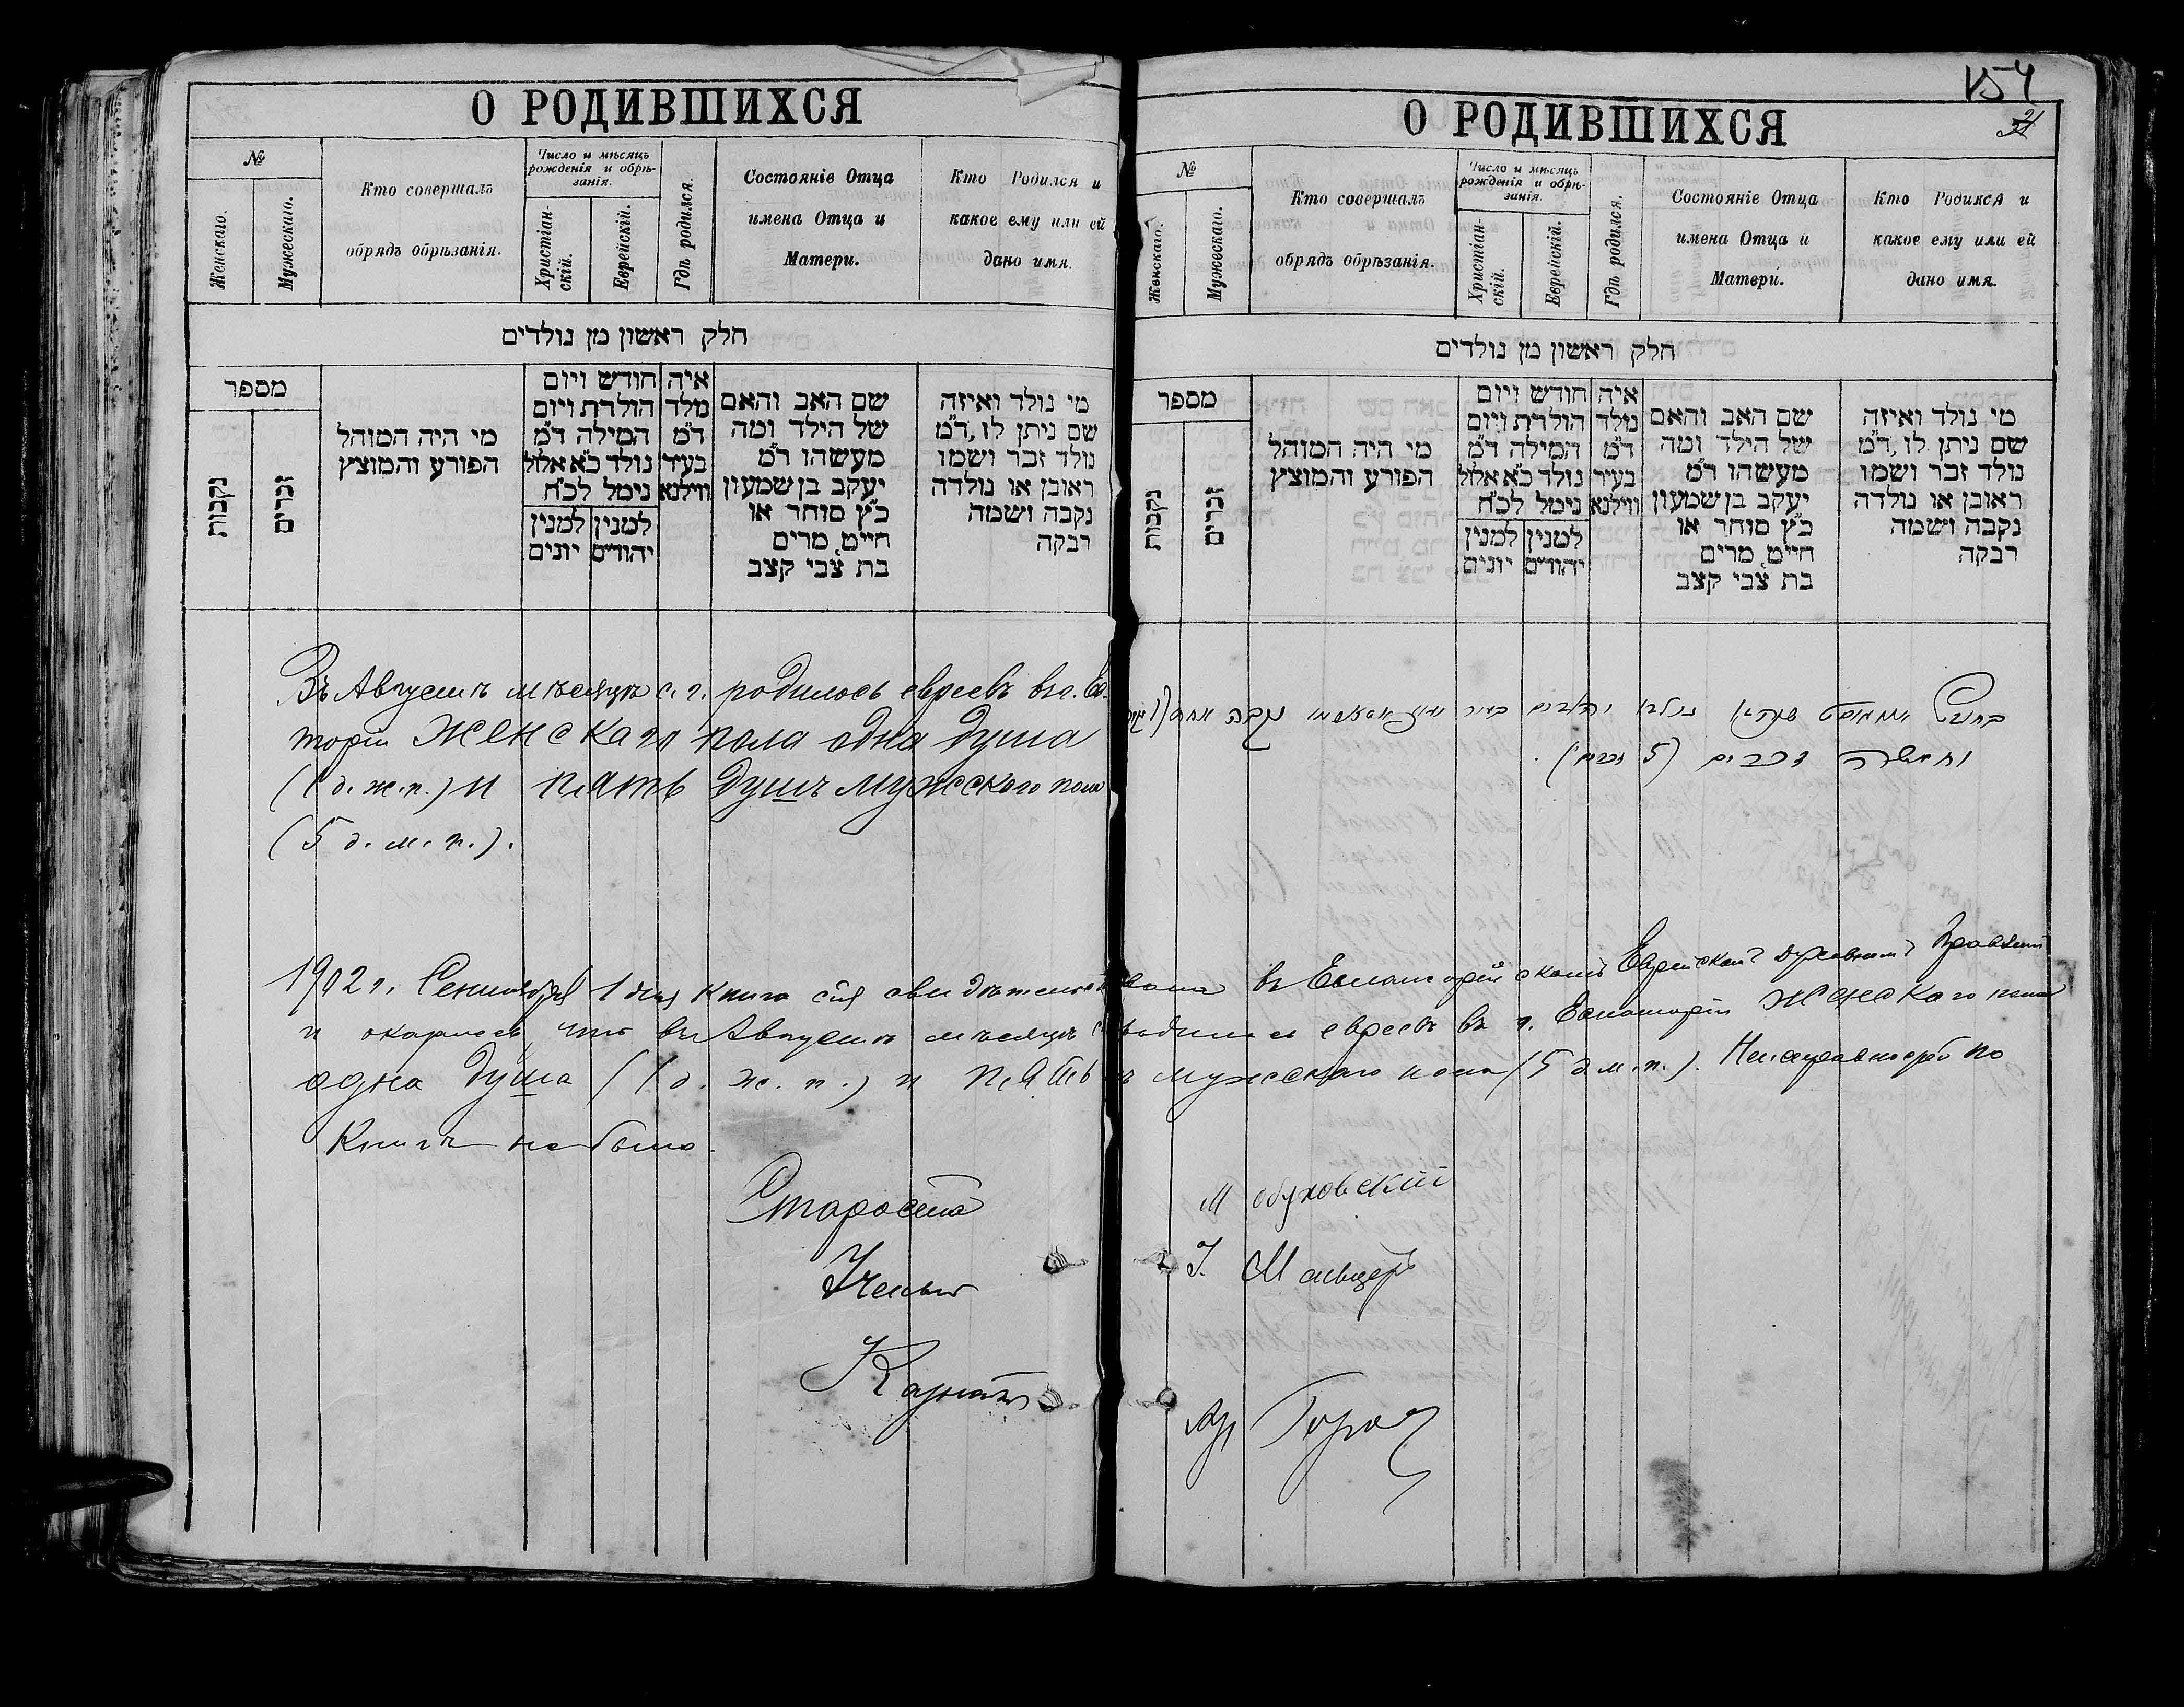 О РОДИВШИХСЯ
№
Женскаго.
Мужескаго.
Кто совершалъ
обрядъ обрѣзанія.
Число и мѣсяцъ
рожденія и обрѣ-
занія.
Христіан-
скій.
Еврейскій.
Гдѣ родился.
Состояніе Отца
имена Отца и
Матери.
Кто Родился и
какое ему или ей
дано имя.
חלק ראשון מן נולדים
מספר
נקבות
זכרים
מי היה המוהל
הפורע והמוצץ
חודש ויום
הולדת ויום
המילה ד״מ
נולד כ״א אלול
נימל לכ״ח
למנין יהודים
למנין יונים
איה
נולד
ד״מ
בעיר
ווילנא
שם האב והאם
של הילד ומה
מעשהו ד״מ
יעקב בן שמעון
כ״ץ סוחר או
חייט, מרים
בת צבי קצב
מי נולד ואיזה
שם ניתן לו, ד״מ
נולד זכר ושמו
ראובן או נולדה
נקבה ושמה
רבקה
Въ Августѣ мѣсяцѣ с. г. родилось евреевъ въ г. Евпа-
торіи женскаго пола одна душа
(1 д. ж. п.) и пять душъ мужескаго пола
(5 д. м. п.).
154
21
О РОДИВШИХСЯ
№
Женскаго.
Мужескаго.
Кто совершалъ
обрядъ обрѣзанія.
Число и мѣсяцъ
рожденія и обрѣ-
занія.
Христіан-
скій.
Еврейскій.
Гдѣ родился.
Состояніе Отца
имена Отца и
Матери.
Кто Родился и
какое ему или ей
дано имя.
חלק ראשון מן נולדים
מספר
נקבות
זכרים
מי היה המוהל
הפורע והמוצץ
חודש ויום
הולדת ויום
המילה ד״מ
נולד כ״א אלול
נימל לכ״ח
למנין יהודים
למנין יונים
איה
נולד
ד״מ
בעיר
ווילנא
שם האב והאם
של הילד ומה
מעשהו ד״מ
יעקב בן שמעון
כ״ץ סוחר או
חייט, מרים
בת צבי קצב
מי נולד ואיזה
שם ניתן לו, ד״מ
נולד זכר ושמו
ראובן או נולדה
נקבה ושמה
רבקה
בחודש אווגוסט נולדו יהודים בעיר נקבה אחת
וחמשה זכרים (5 זכרים).
1902 г. Сентября 1 дня книга сія свидѣтельствована въ Евпаторійскомъ Еврейскомъ Духовномъ Правленіи
и оказалось, что въ Августѣ мѣсяцѣ с. родилось евреевъ въ г. Евпаторіи женскаго пола
одна душа (1 д. ж. п.) и пять мужескаго пола (5 д. м. п.). Неисправностей по
книгѣ не было.
Староста М Обуховскій
Ученый І. Мельцеръ
Казнач